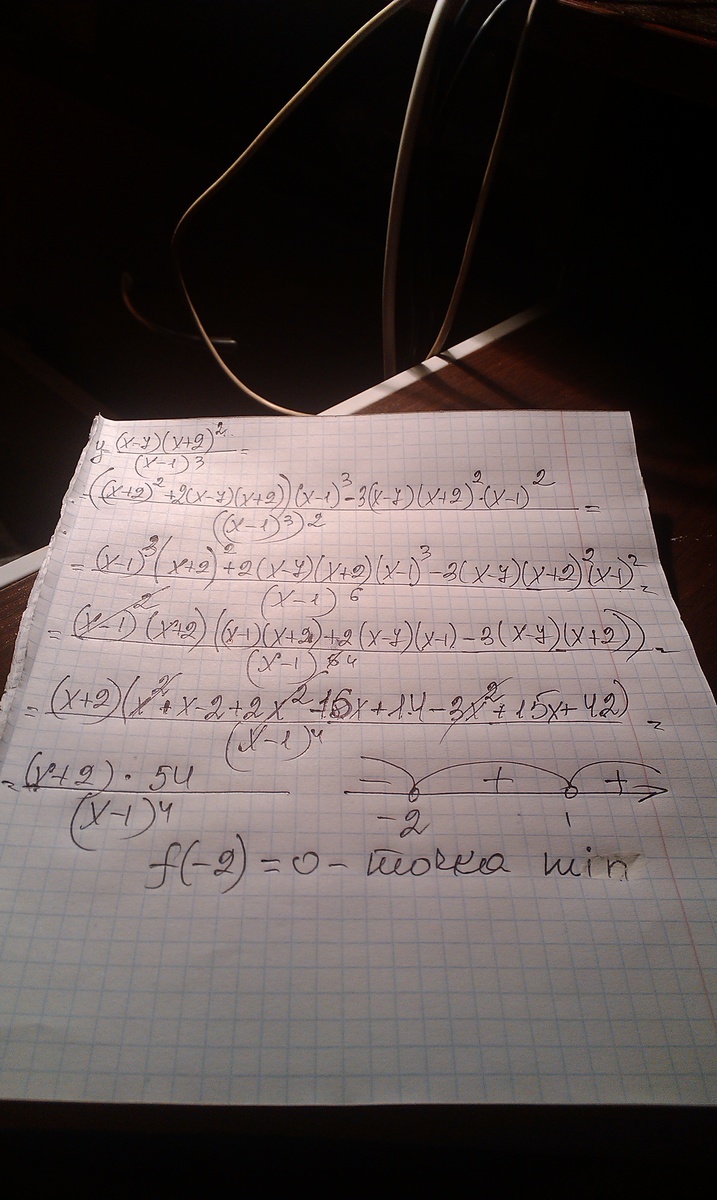 y = (x-7)(x+2)^2 / (x-1)^3 =
= ((x+2)^2 + 2(x-7)(x+2))(x-1)^3 - 3(x-7)(x+2)^2·(x-1)^2 / ((x-1)^3)^2 =
= (x-1)^3(x+2)^2 + 2(x-7)(x+2)(x-1)^3 - 3(x-7)(x+2)^2(x-1)^2 / (x-1)^6 =
= (x-1)^2(x+2)((x-1)(x+2) + 2(x-7)(x-1) - 3(x-7)(x+2)) / (x-1)^6 4 =
= (x+2)(x^2 + x - 2 + 2x^2 - 16x + 14 - 3x^2 + 15x + 42) / (x-1)^4 =
= (x+2)·54 / (x-1)^4
- + +
-2 1
f(-2) = 0 - точка min